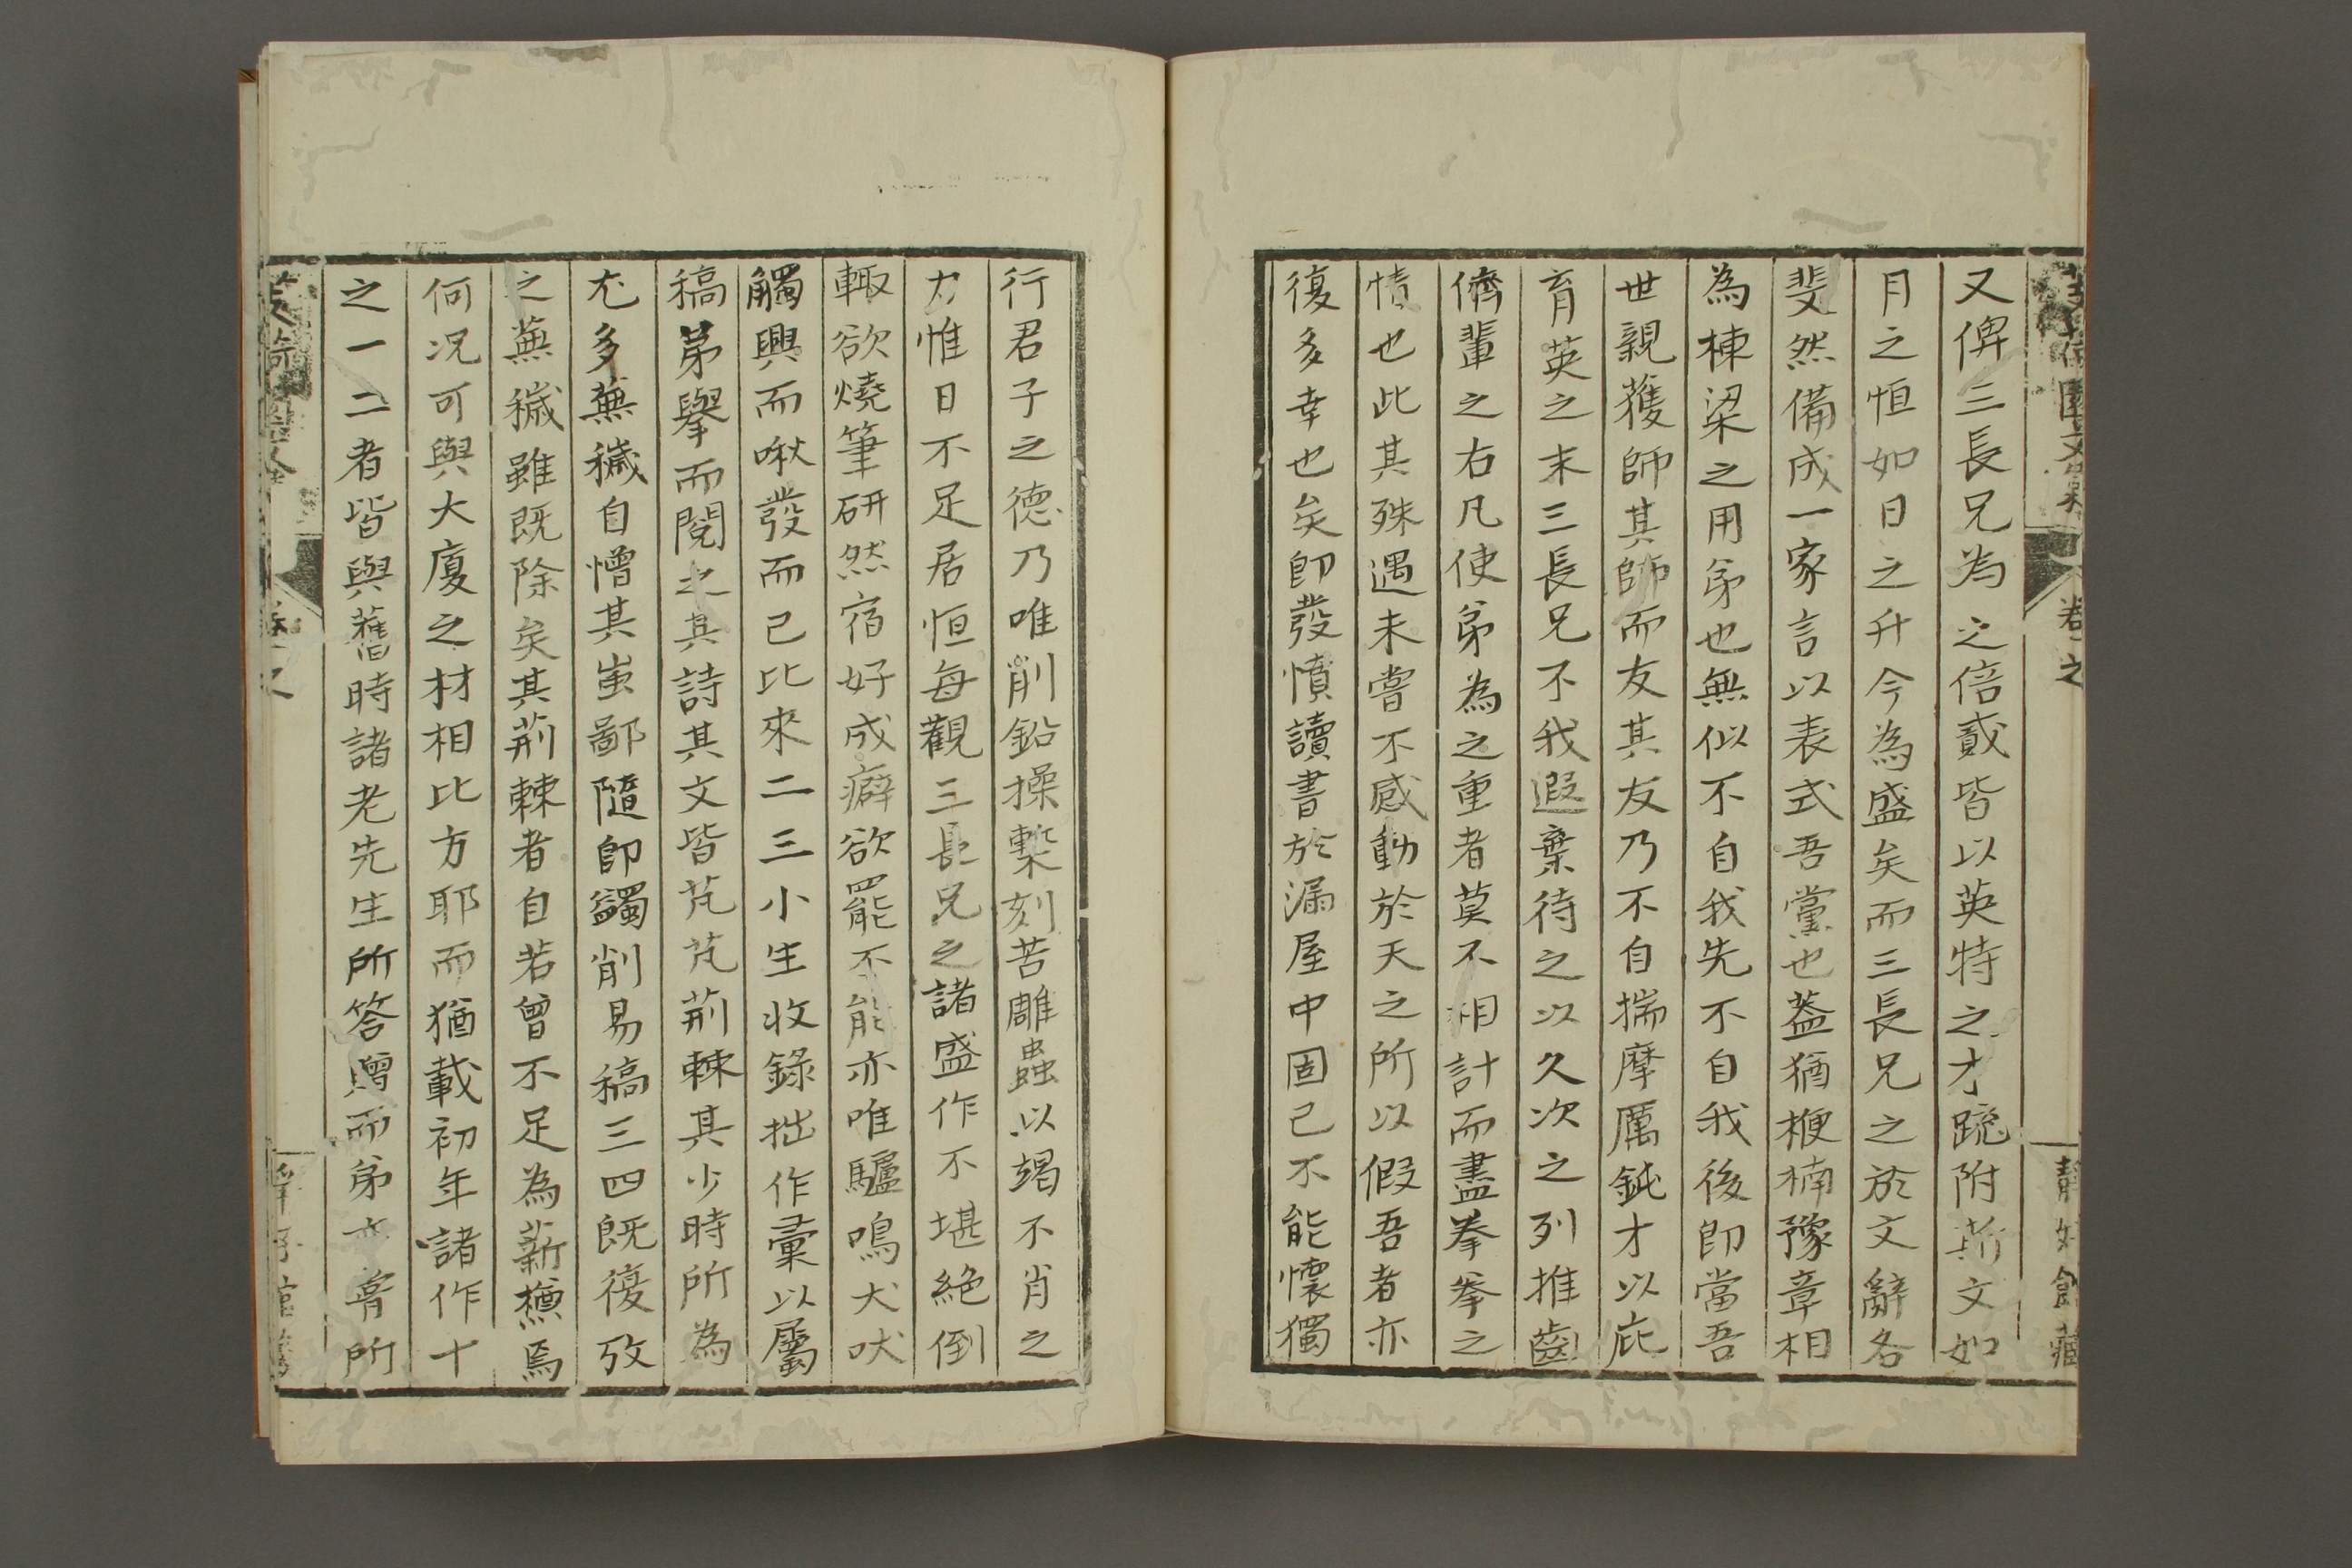 又俾三長兄為之倍貳皆以英特之才踪附斯文如
月之恒如日之升今為盛矣而三長兄之於文辭各
斐然備成一家言以表式吾黨也蓋猶楩楠豫章相
為棟梁之用弟也無似不自我先不自我後卽當吾
世親獲師其師而友其友乃不自揣摩厲鈍才以庇
育英之末三長兄不我遐棄待之以久次之列推齒
儕輩之右凡使弟為之重者莫不相計而盡拳拳之
情也此其殊遇未嘗不感動於天之所以假吾者亦
復多幸也矣卽發憤讀書於漏屋中固已不能懷獨
行君子之德乃唯削鉛操槧刻苦雕蟲以竭不肖之
力惟日不足居恒每觀三長兄之諸盛作不堪絕倒
輙欲燒筆研然宿好成癖欲罷不能亦唯驢鳴犬吠
觸興而啾發而已比來二三小生收錄拙作彙以屬
稿弟舉而閱之其詩其文皆芃芃荊棘其少時所為
尤多蕪穢自憎其蚩鄙隨卽蠲削易稿三四既復攷
之蕪穢雖既除矣其荊棘者自若曾不足為薪槱焉
何况可與大廈之材相比方耶而猶載初年諸作十
之一二者皆與舊時諸老先生所答贈而弟亦嘗所
卷之